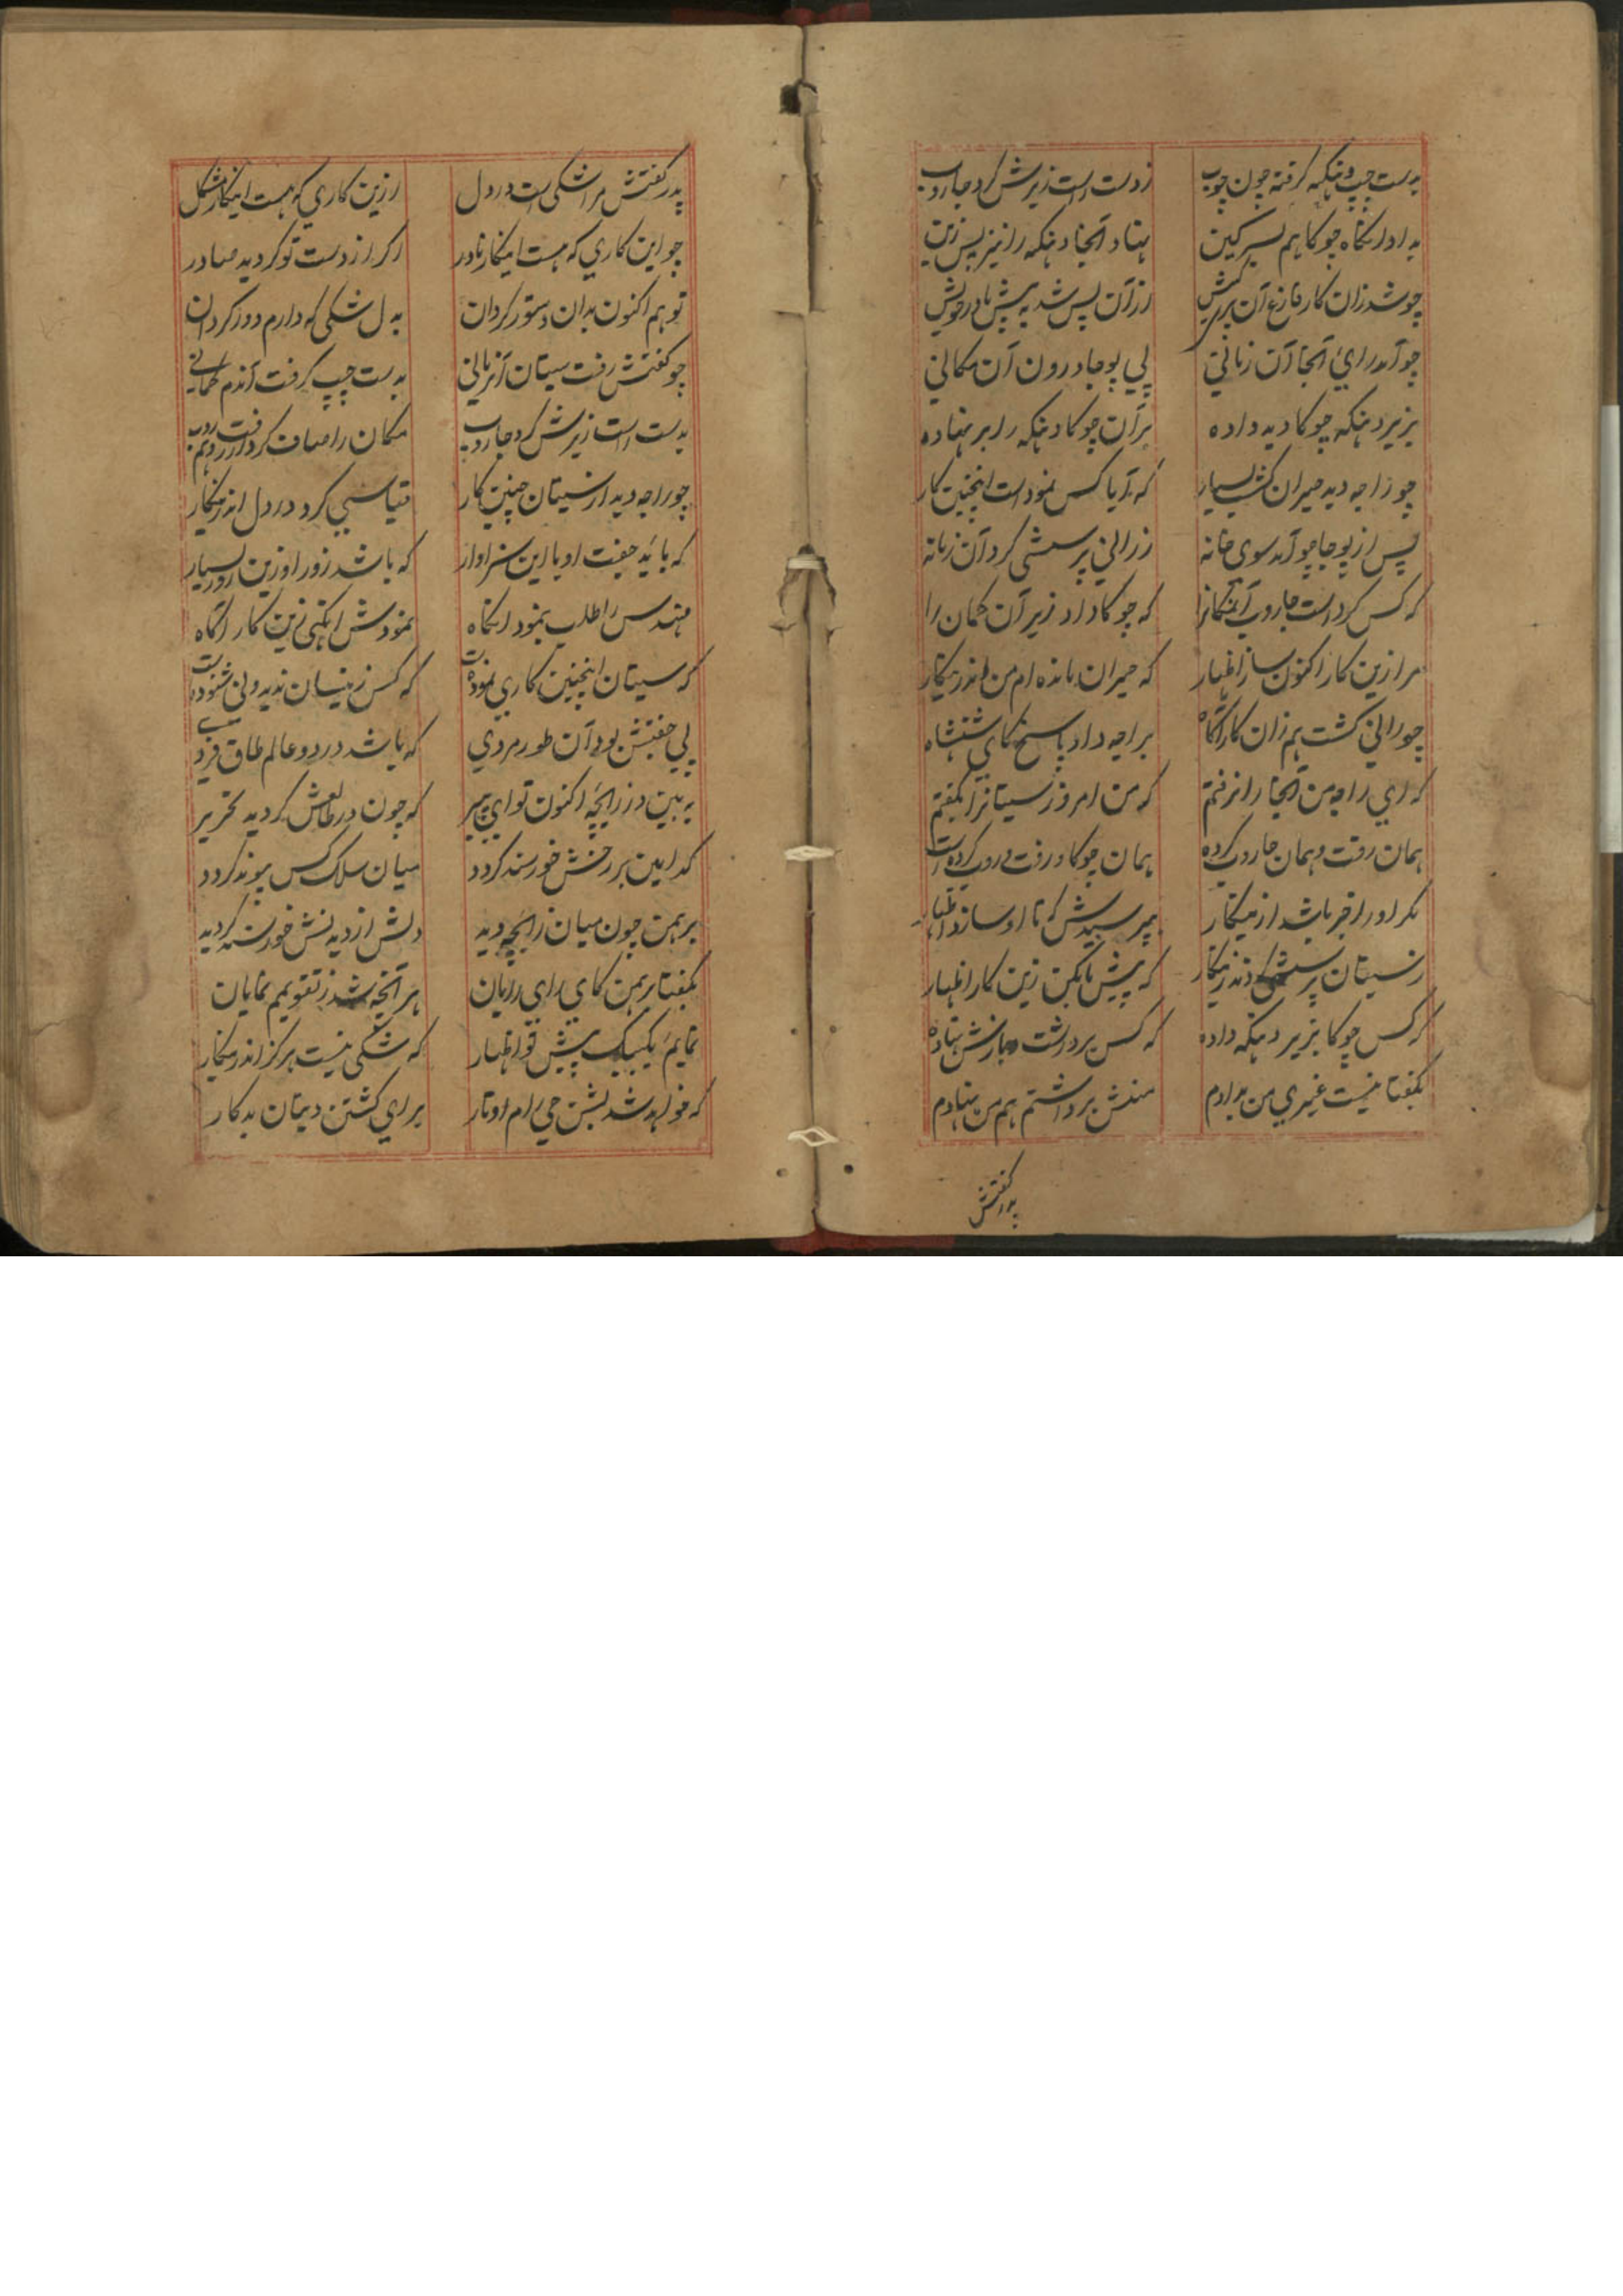 بدست چپ دهنکه کرفته چون چوب زدست راست زیرش کرد جاروب
بداد انکاه چوکا هم بسرکین نهاد آنجا دهنکه را نیز پس زین
چو شد زان کار فارغ آن پریکیش از آن پس شد به پیش مادر خویش
چو آمد رای آنجا آن زمانی پی پوجا درون آن مکانی
بزیر دهنکه چوکا دید داده بر آن چوکا دهنکه را بر نهاده
چو راجه دید حیران کشت بسیار که آیا کس نمود است اینچنین کار
پس از پوجا چو آمد سوی خانه ز رانی پرسشی کرد آن زمانه
که کس کرد است جاروب آنمکانرا که چوکا داد زیر آن کمان را
مرا زین کار اکنون ساز اظهار که حیران مانده ام من اندرینکار
چو رانی کشت هم زان کار آکاه براجه داد پاسخ کای شهنشاه
که ای راجه من آنجا را نرفتم که من امروز سیتانرا بکفتم
همان رفت و همان جاروب کرده همان چوکا و رفت و روب کرده است
مکر او را خبر باشد ازینکار بپرسیدش که تا او سازد اظهار
ز سیتان پرسشی کردند زینکار که پیش ما بکن زین کار اظهار
که کس چوکا بزیر دهنکه داده که کس برداشت و بازش نهاده
بکفتا نیست غیری من بدادم منش برداشتم هم من نهادم
پدر کفتش
پدر کفتش مرا شکی است در دل ازین کاری که هست اینکار مشکل
چو این کاری که هست اینکار نادر اکر از دست تو کردید صادر
تو هم اکنون بدان دستور کردان به دل شکی که دارم دور کردان
چو کفتش رفت سیتان آنزمانی بدست چپ کرفت آندم کمانی
بدست راست زیرش کرد جاروب مکان را صاف کرد از رفت و روب هم
چو راجه دید از سیتان چنین کار قیاسی کرد در دل اندرینکار
که باید جفت او با این سزاوار که باشد زور او زین زور بسیار
مهندس را طلب بنمود انکاه نمودش انکهی زین کار آکاه
که سیتان اینچنین کاری نموده است که کس زینسان ندید و نی شنوده است
پی جفتش بود آن طور مردی که باشد در دو عالم طاق فردی
به بین در زایچه اکنون تو ای پیر که چون در طالعش کردید تحریر
کدامین بر رخش خورسند کردد میان سلک کس پیوند کردد
برهمن چون میان زایچه دید دلش از دیدنش خورسند کردید
بکفتا برهمن کای رای رایان هر آنچه شد ز تقویمم نمایان
نمایم یکبیک پیش تو اظهار که شکی نیست هرکز اندرینکار
که خواهد شد بشن جی رام اوتار برای کشتن دیتان بدکار